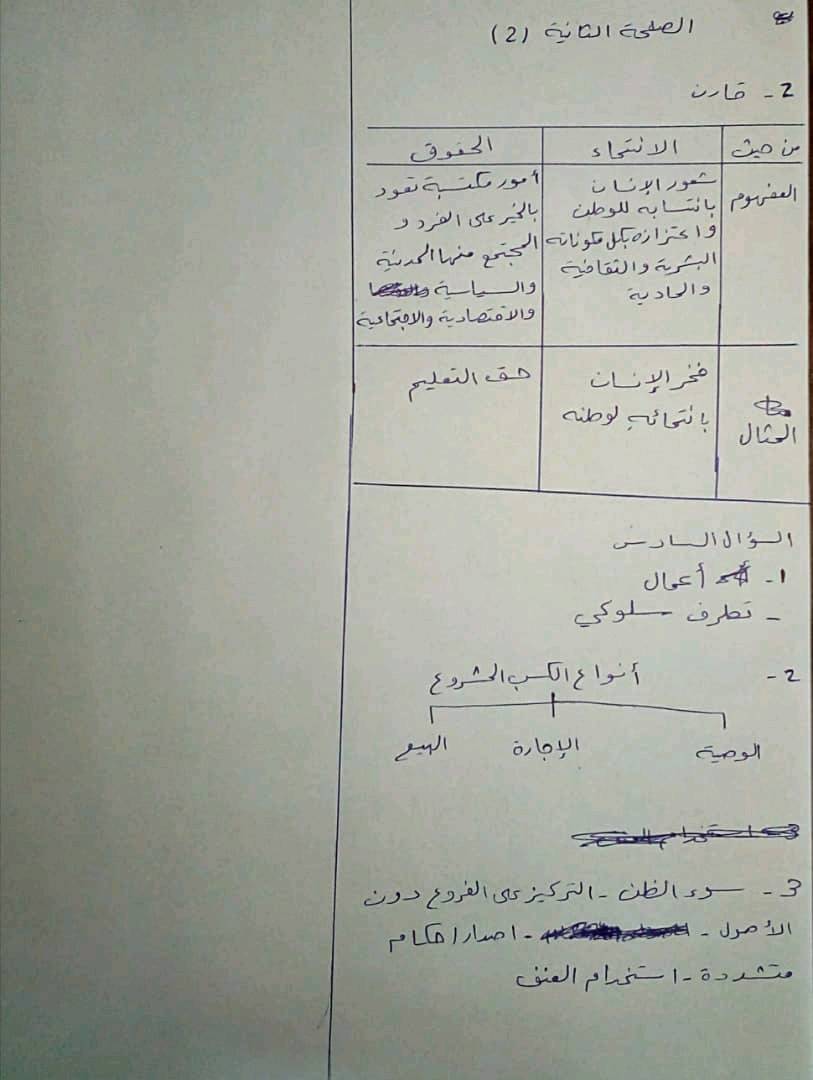 الصفحة الثانية (2)
2 - قارن
من حيث الانتماء الحقوق
المفهوم
شعور الإنسان
بانتسابه للوطن
واعتزازه بكل مكوناته
البشرية والثقافية
والمادية
أمور مكتسبة تعود
بالخير على الفرد و
المجتمع منها المدنية
والسياسية
والاقتصادية والاجتماعية
المثال
فخر الإنسان
بانتمائه لوطنه
حق التعليم
السؤال السادس
1 - أعمال
- تطرف سلوكي
2 - أنواع الكسب المشروع
الوصية الإجارة البيع
3 - سوء الظن - التركيز على الفروع دون
الأصول - - اصدار احكام
متشددة - استخدام العنف